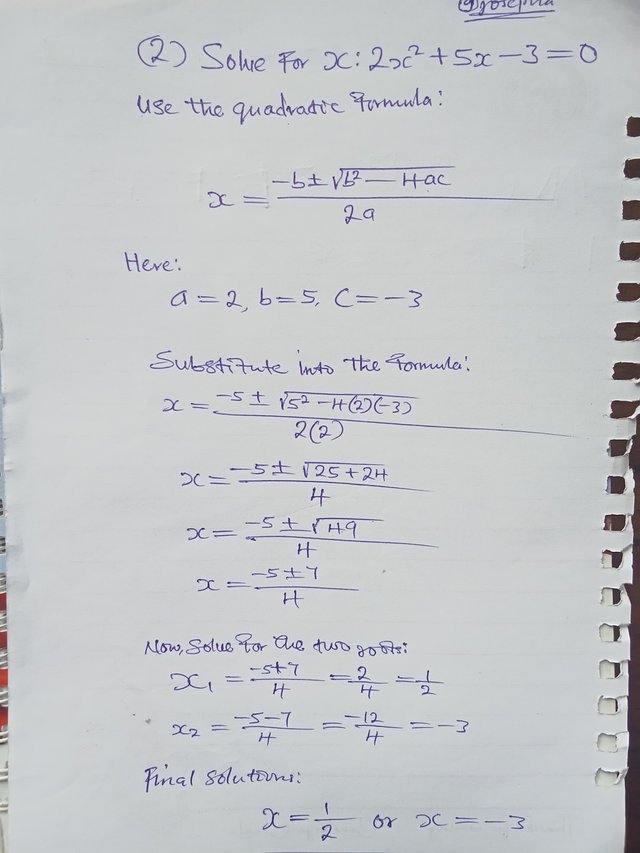 (2) Solve for x: 2x² + 5x − 3 = 0
Use the quadratic formula:
x = (−b ± √(b² − 4ac)) / 2a
Here:
a = 2, b = 5, c = −3
Substitute into the formula:
x = (−5 ± √(5² − 4(2)(−3))) / 2(2)
x = (−5 ± √(25 + 24)) / 4
x = (−5 ± √49) / 4
x = (−5 ± 7) / 4
Now, solve for the two roots:
x₁ = (−5+7)/4 = 2/4 = 1/2
x₂ = (−5−7)/4 = −12/4 = −3
Final solutions:
x = 1/2 or x = −3